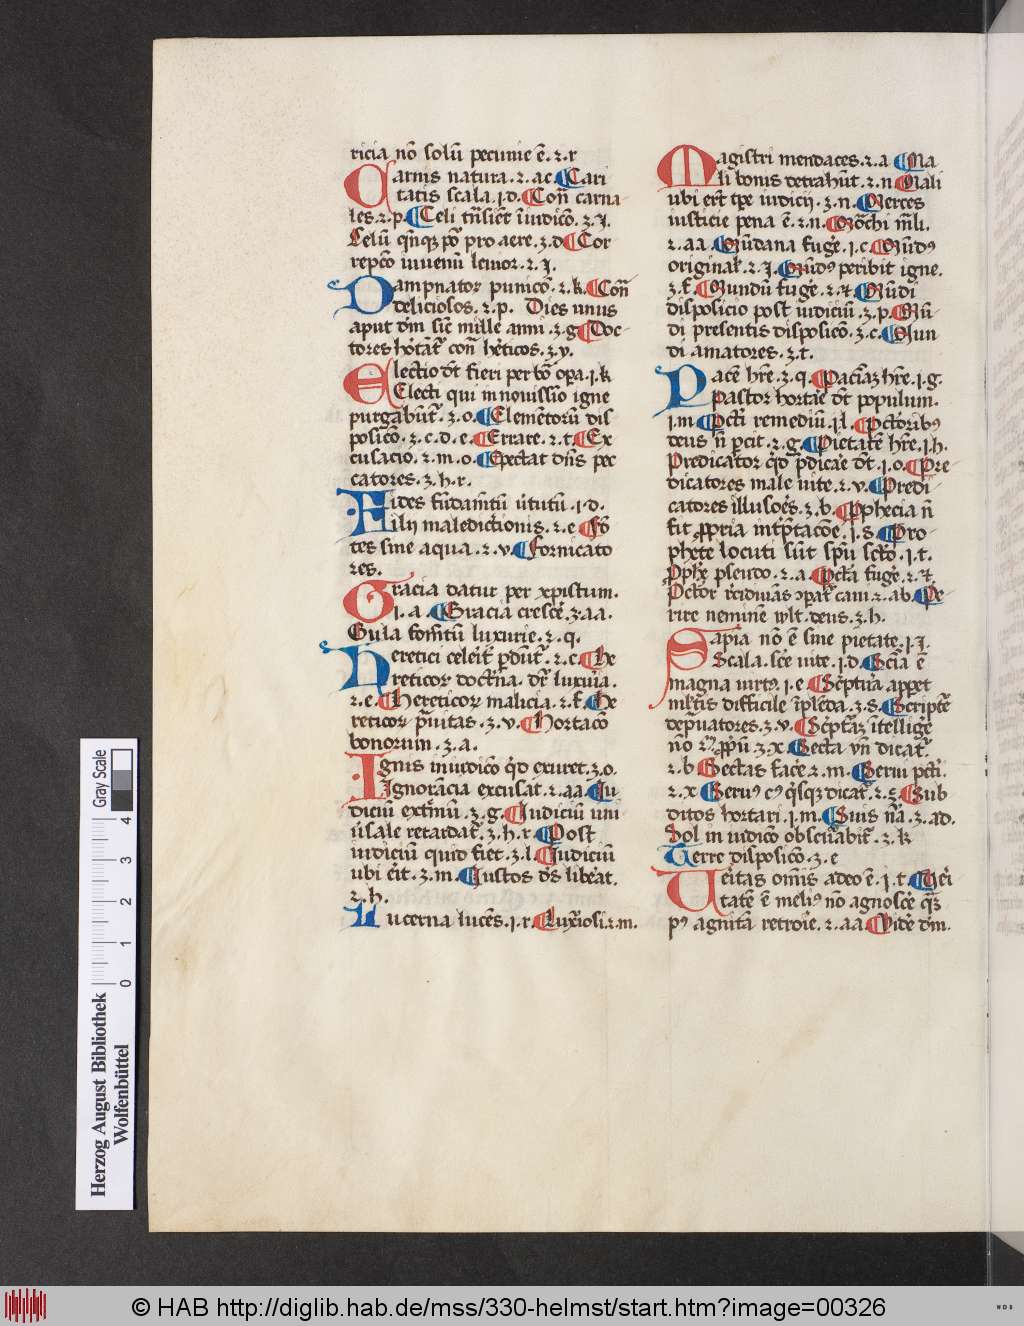 ricia nō solū pecunie ē .2.r
Carnis natura .2. ac. Cari
tatis scala .i.d. Con̄ carna
les .2.p. Celi trāsiēt ī iudicō .2.i.
Celū qm̄qz pō pro aere .3.d Cor
repcō iuvenū lenior .2.i.
Dampnator̄ punicō .2.k. Con̄
deliciosos .2.p. Dies unus
aput dm̄ sic̄ mille anni .3.g Doc
tores hōtāt con̄ hēticos .3.v.
Electio dt̄ fieri per bō opa .i.k
Electi qui in novissīo igne
purgabūt .3.o. Elemētorū dis
posicō .3.c.d.e. Errare .2.t. Ex
cusacio .2.m.o. Expectat dn̄s pec
catores .3.h.r.
Fides fūdam̄tū v̄tutū .i.d.
Filii maledictionis .2.e Fō
tes sine aqua .2.v. Fornicato
res.
Gracia datur per xpistum.
.i.a. Gracia crescē .3.aa.
Gula fomētū luxurie .2.q.
Heretici celeit̄ pdūt .2.c. He
reticor̄ doctīna dr̄ luxuīa.
.2.e. Hereticor̄ malicia .2.f. He
reticor̄ pravitas .3.v. Hortacō
bonorum .3.a.
Ignis in iudicō qd̄ exuret .3.o.
Ignorācia excusat .2.aa. Iu
diciū extm̄ū .3.g. Iudiciū uni
v̄sale retardat̄ .3.h.r. Post
iudiciū quid fiet .3.l. Iudiciū
ubi ēit .3.m. Iustos dē libēat.
.2.h.
Lucerna lucēs .i.r. Luxīosi .2.m.
Magistri mendaces .2.a Ma
li bonis detrahūt .2.n. Mali
ubi erūt tpē iudicij .3.n. Merces
iusticie pena ē .2.n. Mōchi mli.
.2.aa. Mūdana fugē .i.c. Mūdꝰ
originał .2.i. Mūdꝰ peribit igne.
.3.f. Mundū fugē .2.& Mūdi
disposicio post iudiciū .3.p. Mū
di presentis disposicō .3.c. Mun
di amatores .3.t.
Pacē hr̄e .3.q. Paciāz hr̄e .i.g.
Pastor hortar̄e dt̄ populum.
.i.m. Pcti remediū .i.l. Pctōribꝰ
deus n̄ pcit .2.g. Pietatē hr̄e .i.h.
Predicator qd̄ pdicar̄e dt̄ .i.o. Pre
dicatores male vite .2.v. Predi
catores illusoēs .3.b. Pphecia n̄
fit ppria intp̄tacōe .i.s. Pro
phete locuti sūt spū scō .i.t.
Pphē pseudo .2.a. Pctā fugē .2.&.
Pctōr recidivās ɔpat̄ cani .2.ab. Pe
rire neminē wlt deus .3.h.
Sapia nō ē sine pietate .i.i.
Scala scē vite .i.d. Sciā ē
magna virtꝰ .i.e Scptura appet
mltis difficile īplēda .3.s. Scripte
depravatores .3.v. Scpturāz ītelligē
nō .. ppū .3.x. Secta vn̄ dicat.
.2.b Sectas facē .2.m. Servi pcti.
.2.x Servꝰ cꝰ qisqz dicat .2.s. Sub
ditos hortari .i.m. Suis nā .3.ad.
Sol in iudicō obscuabit̄ .3.k
Terre disposicō .3.e
Veritas omīs a deo ē .i.t. Veri
tatē ē meliꝰ nō agnoscē qz
pꝰ agnitā retroīe .2.aa. Videt dm̄.
Herzog August Bibliothek
Wolfenbüttel
0 1 2 3 4
Gray Scale
© HAB http://diglib.hab.de/mss/330-helmst/start.htm?image=00326